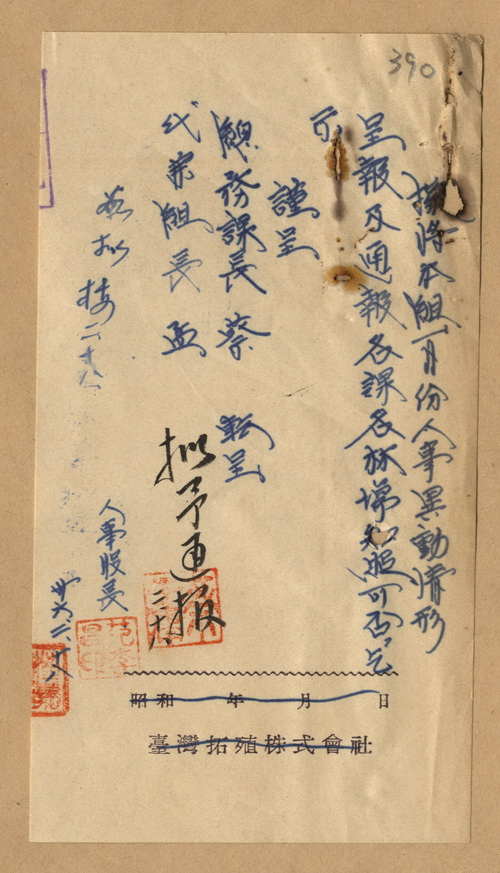 390
擬將本組一月份人事異動情形
呈報及通報各課各林場知照可否乞
示
謹呈
總務課長 蔡 転呈
代業組長 孟
拟予通报
二十八
人事股長
卅六二十八
昭和 年 月 日
臺灣拓殖株式會社